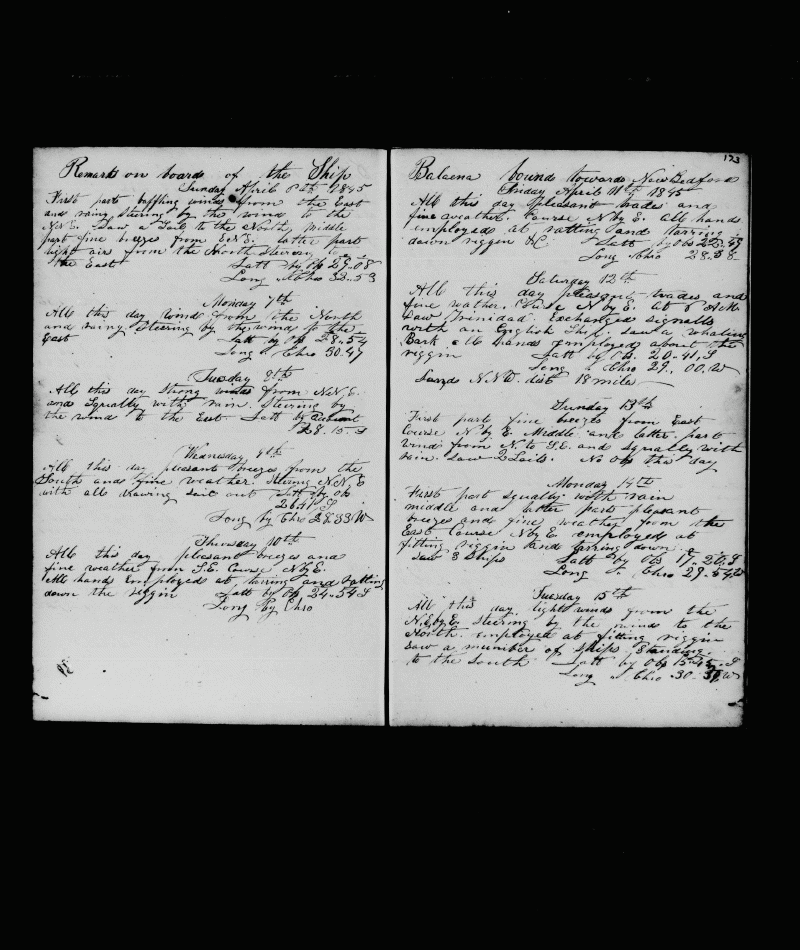 Remarks on board of the Ship
Sunday April 6th 1845
First part baffling winds from the East
and rainy steering by the wind to the
N.N.E. Saw a Sail to the North, Middle
part fine breezes from E.N.E. latter part
light airs from the North Steering to
the East Latt by Ob 29..08
Long . Chro 33..53
Monday 7th
All this day Wind from the North
and rainy Steering by the wind to the
East Latt by Ob 28..54
Long . Chro 30.47
Tuesday 8th
All this day strong winds from N.N.E.
and Squally with rain. Steering by
the wind to the East Latt by account
28..15..S
Wednesday 9th
All this day pleasant breezes from the
South and fine weather. Steering N.N.E
with all drawing sail out Latt by Ob
26..41 S
Long by Chro 28.33 W
Thursday 10th
All this day pleasant breezes and
fine weather from S.E. Course N.by E.
All hands employed at tarring and ratling
down the riggin Latt by Ob 24..54 S
Long By Chro
123
Balaena bound towards New Bedford
Friday April 11th 1845
All this day pleasant trades and
fine weather. Course N by E. all hands
employed at ratling and tarring
down riggin &C Latt by Ob 22..48
Long . Chro 28.58
Saturday 12th
All this day pleasant trades and
fine wather. Course N by E. At 6 A.M.
Saw Trinidad. Exchanged signalls
with an English Ship. Saw a whaling
Bark all hands employed about the
riggin Latt by Ob. 20..41, S
Long . Chro 29.. 00, W
Land N.N.W. dist 18 miles
Sunday 13th
First part fine breezes from East
Course N by E. Middle and latter part
Wind from N. to S.E. and squally with
rain. Saw 2 Sails. No Obs this day
Monday 14th
First part squally with rain
middle and latter parts pleasant
breezes and fine weather from the
East Course N by E employed at
fitting riggin and tarring down.
Saw 3 Ships Latt by Ob 17..26, S
Long . Chro 29..54, W
Tuesday 15th
All this day light winds from the
N.E. by E. Steering by the wind to the
North. employed at fitting riggin
Saw a number of Ships Standing
to the South Latt by Ob 15.. S
Long . Chro 30..37, W